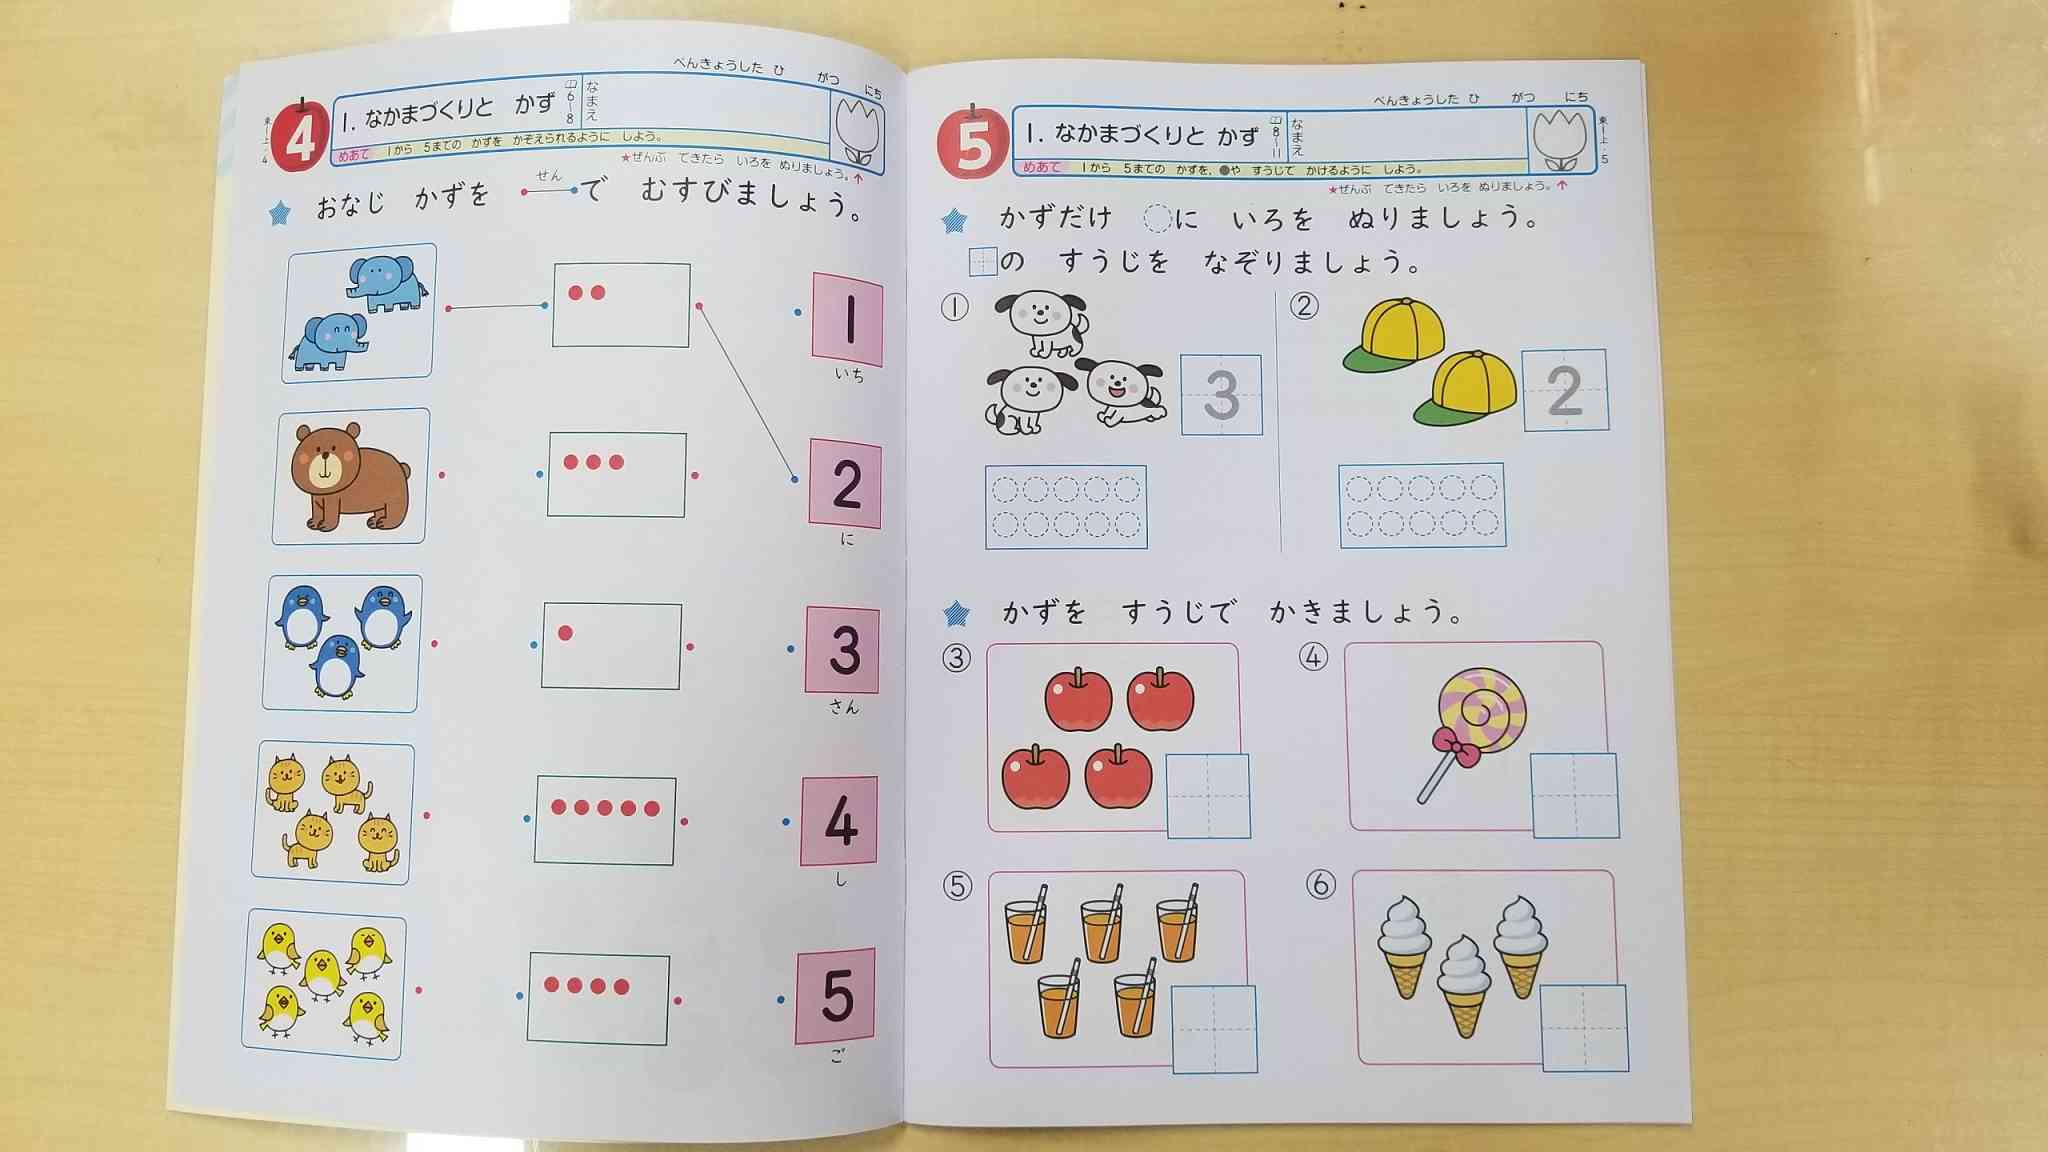 べんきょうした ひ がつ にち
4
1. なかまづくりと かず
6-8
なまえ
めあて 1から 5までの かずを かぞえられるように しよう。
東一上・4
★ぜんぶ てきたら いろを ぬりましょう。↑
せん
★ おなじ かずを で むすびましょう。
1
いち
2
に
3
さん
4
し
5
ご
べんきょうした ひ がつ にち
5
1. なかまづくりと かず
8-11
なまえ
めあて 1から 5までの かずを、●や すうじで かけるように しよう。
東一上・5
★ぜんぶ できたら いろを ぬりましょう。↑
★ かずだけ ◌に いろを ぬりましょう。
の すうじを なぞりましょう。
① 3
② 2
★ かずを すうじで かきましょう。
③
④
⑤
⑥